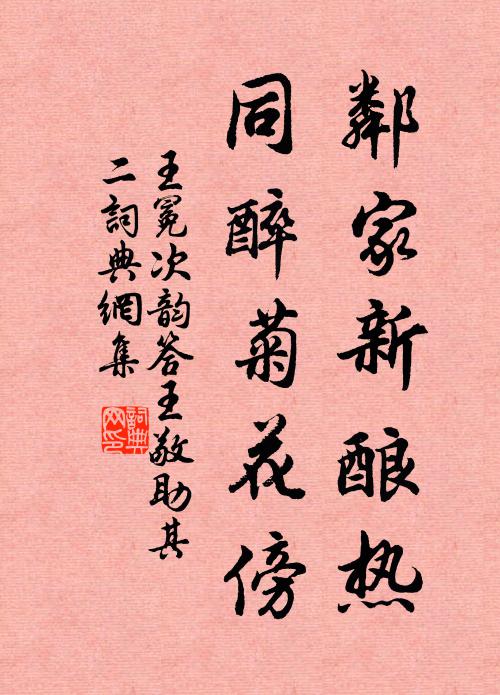 鄰家新酿热
同醉菊花傍
王冕次韵答王敬助其
二詞典網集
詞典
网印